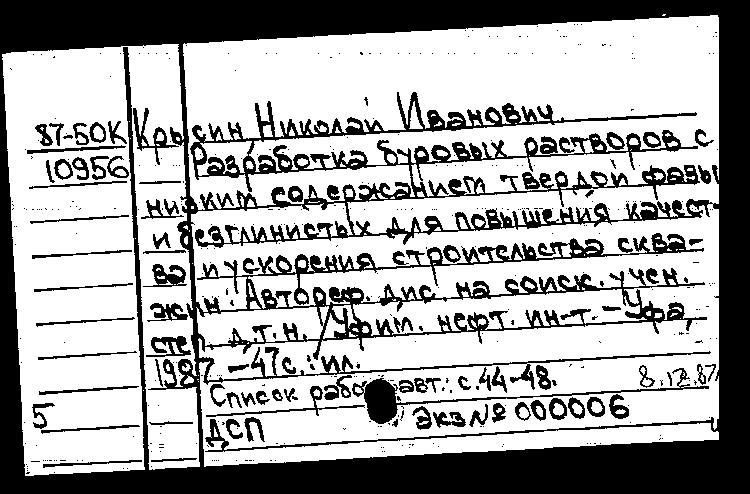 87-БОК Крысин Николай Иванович.
10956 Разработка буровых растворов с
низким содержанием твердой фазы
и безглинистых для повышения качест-
ва и ускорения строительства сква-
жин : Автореф. дис. на соиск. учен.
степ. д.т.н. / Уфим. нефт. ин-т. - Уфа,
1987. - 47с. : ил.
Список работ авт.: с.44-48. 8.12.87
5 ДСП Экз № 000006